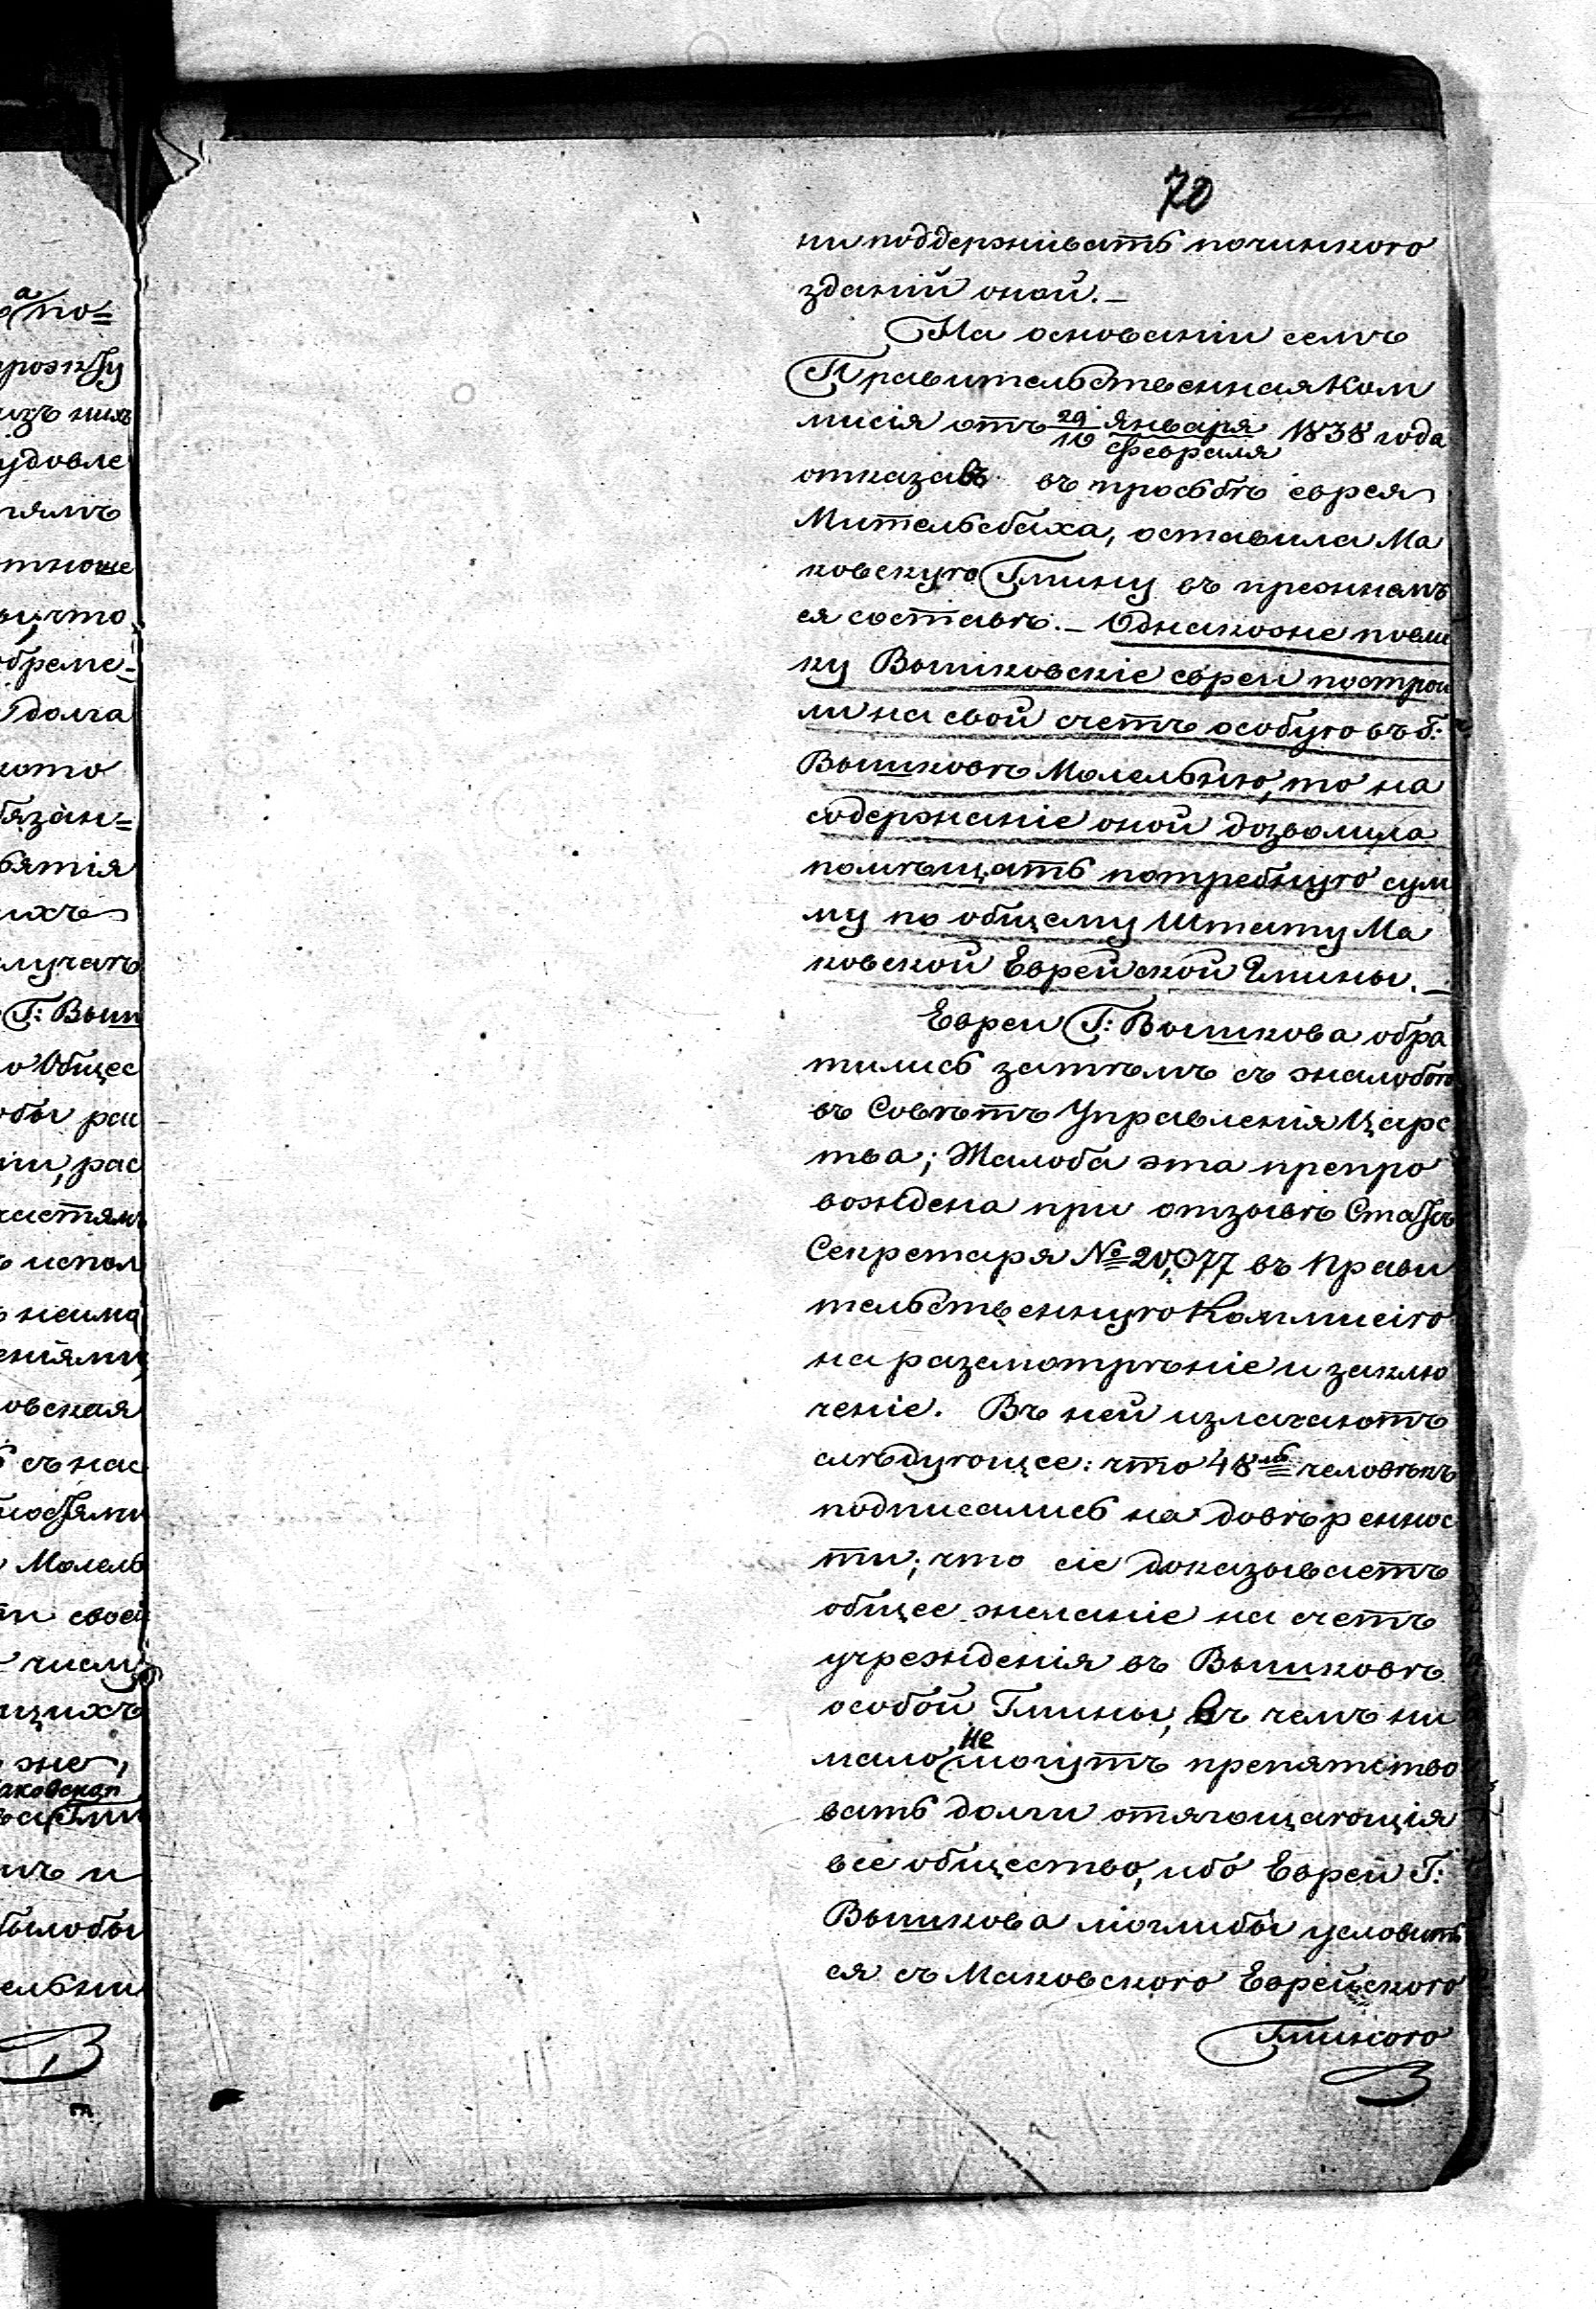 70
ни поддерживать починкою
зданій оной. —
На основаніи семъ
Правительственная Ком
мисія отъ 29/10 Января/Февраля 1838 года
отказавъ въ просьбѣ еврея
Мительсбаха, оставила Ма
ковскую Гмину въ прежнемъ
ея составѣ. — Однакоже поели
ку Вышковскіе евреи построи
ли на свой счетъ особую въ Г:
Вышковѣ Молельню, то на
содержаніе оной дозволила
помѣщать потребную сум
му по общему Штату Ма
ковской Еврейской Гмины. —
Евреи Г: Вышкова обра
тились затѣмъ съ жалобою
въ Совѣтъ Управленія Царс
тва; Жалоба эта препро
вождена при отзывѣ Статсъ
Секретаря № 20,077 въ Прави
тельственную Коммисію
на разсмотрѣніе и заклю
ченіе. Въ ней излагаютъ
слѣдующее: что 48мь человѣкъ
подписались на довѣреннос
ти; что сіе доказываетъ
общее желаніе на счетъ
учрежденія въ Вышковѣ
особой Гмины, въ чемъ ни
мало не могутъ препятство
вать долги отягощающія
все общество, ибо Евреи Г:
Вышкова моглибы условить
ся съ Маковскою Еврейскою
Гминою
а
по=
изъ нихъ
удовле
что
обреме=
долга
бязан=
ятія
Г: Выш
о Общес
обы рас
рас
испол
овская
съ нас
Молель
своей
же,
аковская
и
былобы
ельни